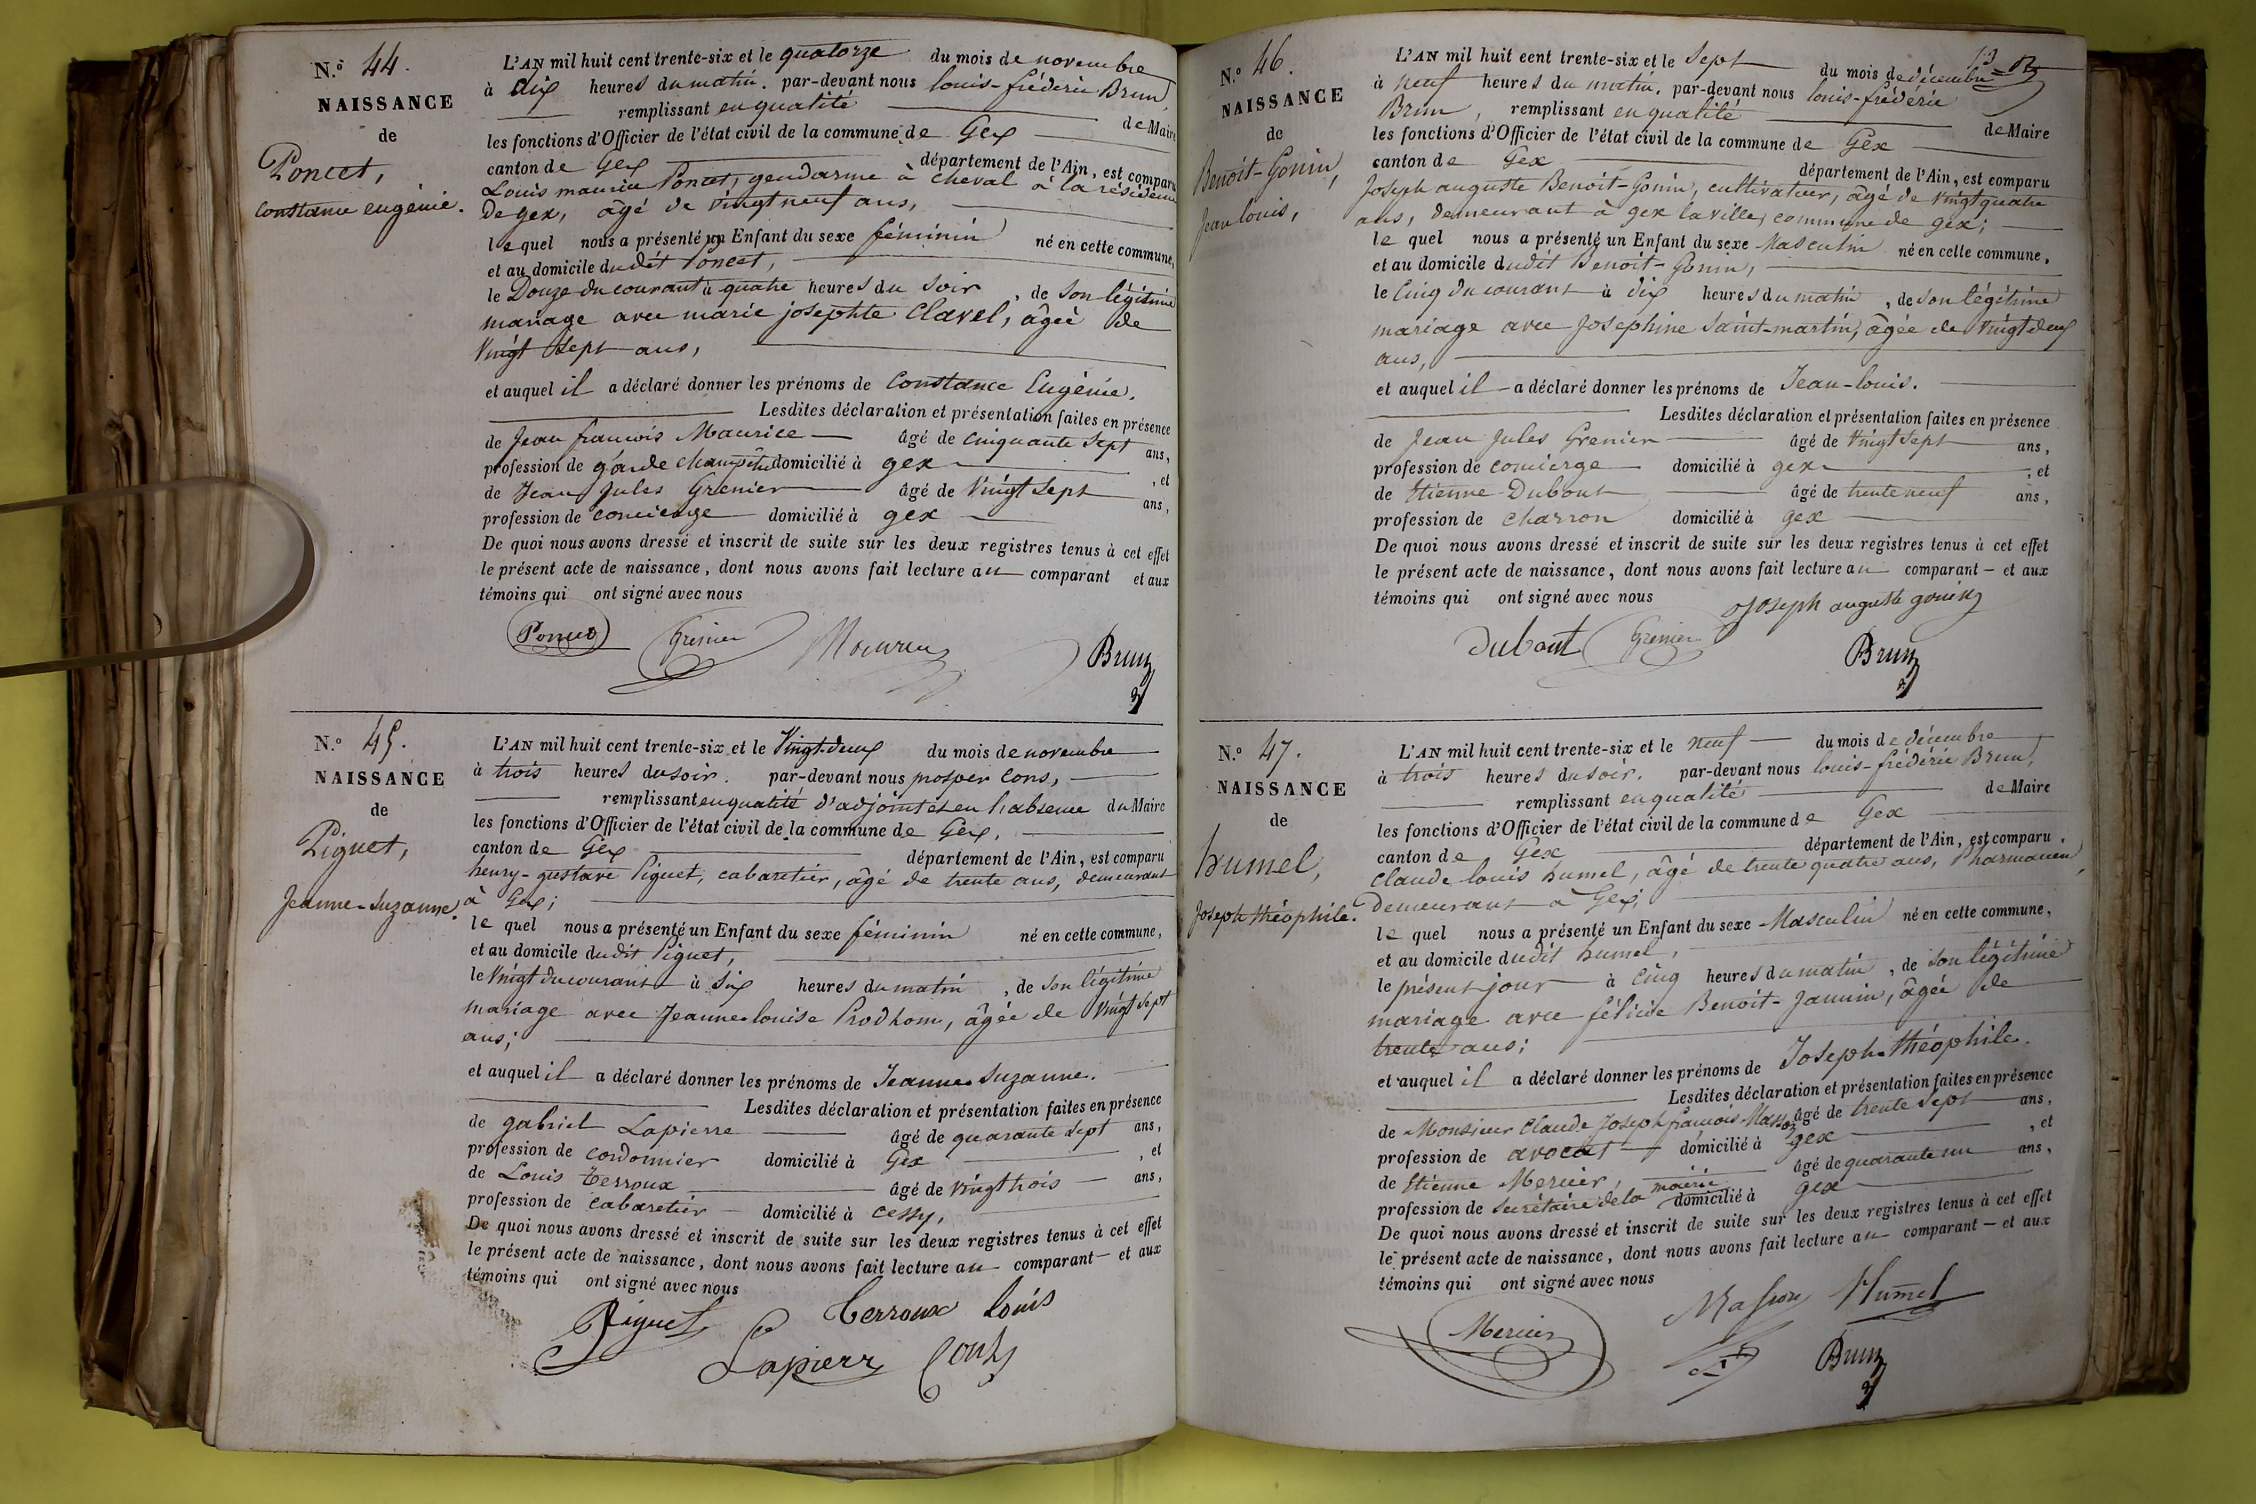 N.° 44.
NAISSANCE
de
Poncet,
constance eugénie.
L'AN mil huit cent trente-six et le quatorze du mois de novembre
à dix heures du matin. par-devant nous louis-frédéric Brun,
remplissant en qualité de Maire
les fonctions d'Officier de l'état civil de la commune de Gex
canton de Gex département de l'Ain, est comparu
Louis maurice Poncet, gendarme à cheval à la résidence
de gex, âgé de vingt neuf ans,
le quel nous a présenté un Enfant du sexe féminin né en cette commune,
et au domicile dudit Poncet,
le Douze du courant à quatre heures du soir, de son légitime
mariage avec marie josephte Clavel, âgée de
vingt sept ans,
et auquel il a déclaré donner les prénoms de Constance Eugénie.
Lesdites déclaration et présentation faites en présence
de Jean francois Maurice âgé de cinquante sept ans,
profession de garde champêtre domicilié à gex, et
de Jean Jules Grenier âgé de vingt sept ans,
profession de concierge domicilié à gex
De quoi nous avons dressé et inscrit de suite sur les deux registres tenus à cet effet
le présent acte de naissance, dont nous avons fait lecture au comparant et aux
témoins qui ont signé avec nous
Poncet Grenier Maurice Brun
N.° 45.
NAISSANCE
de
Piguet,
Jeanne-Suzanne.
L'AN mil huit cent trente-six et le vingt-deux du mois de novembre
à trois heures du soir. par-devant nous prosper Cons,
remplissant en qualité d'adjoint et en l'absence du Maire
les fonctions d'Officier de l'état civil de la commune de Gex,
canton de Gex département de l'Ain, est comparu
henry-gustave Piguet, cabaretier, âgé de trente ans, demeurant
à Gex;
le quel nous a présenté un Enfant du sexe féminin né en cette commune,
et au domicile dudit Piguet,
le vingt du courant à six heures du matin, de son légitime
mariage avec Jeanne louise Prodhom, âgée de vingt sept
ans;
et auquel il a déclaré donner les prénoms de Jeanne Suzanne.
Lesdites déclaration et présentation faites en présence
de gabriel Lapierre âgé de quarante sept ans,
profession de cordonnier domicilié à Gex, et
de Louis Terroux âgé de vingt trois ans,
profession de cabaretier domicilié à cessy,
De quoi nous avons dressé et inscrit de suite sur les deux registres tenus à cet effet
le présent acte de naissance, dont nous avons fait lecture au comparant et aux
témoins qui ont signé avec nous
Piguet Terroux louis
Lapierre Cons
N.° 46.
NAISSANCE
de
Benoit-Gonin,
Jean louis,
L'AN mil huit cent trente-six et le sept du mois de décembre
à neuf heures du matin. par-devant nous louis-frédéric
Brun, remplissant en qualité de Maire
les fonctions d'Officier de l'état civil de la commune de Gex
canton de Gex département de l'Ain, est comparu
Joseph auguste Benoit-Gonin, cultivateur, âgé de vingt quatre
ans, demeurant à gex la ville, commune de gex;
le quel nous a présenté un Enfant du sexe Masculin né en cette commune,
et au domicile dudit Benoit-Gonin,
le Cinq du courant à dix heures du matin, de son légitime
mariage avec Josephine Saint-martin, âgée de vingt deux
ans,
et auquel il a déclaré donner les prénoms de Jean-louis.
Lesdites déclaration et présentation faites en présence
de Jean Jules Grenier âgé de vingt sept ans,
profession de concierge domicilié à gex, et
de Etienne Dubout âgé de trente neuf ans,
profession de charron domicilié à gex
De quoi nous avons dressé et inscrit de suite sur les deux registres tenus à cet effet
le présent acte de naissance, dont nous avons fait lecture au comparant et aux
témoins qui ont signé avec nous
joseph auguste gonin
Dubout Grenier Brun
N.° 47.
NAISSANCE
de
humel,
Joseph théophile.
L'AN mil huit cent trente-six et le neuf du mois de décembre
à trois heures du soir. par-devant nous louis-frédéric Brun,
remplissant en qualité de Maire
les fonctions d'Officier de l'état civil de la commune de Gex
canton de Gex département de l'Ain, est comparu.
Claude louis humel, âgé de trente quatre ans, Pharmacien,
demeurant à Gex;
le quel nous a présenté un Enfant du sexe Masculin né en cette commune,
et au domicile dudit humel,
le présent jour à cinq heures du matin, de son légitime
mariage avec félicie Benoit-Jannin, âgée de
trente ans;
et auquel il a déclaré donner les prénoms de Joseph-théophile.
Lesdites déclaration et présentation faites en présence
de Monsieur Claude Joseph francois Masson âgé de trente sept ans,
profession de avocat domicilié à gex, et
de Etienne Mercier, âgé de quarante un ans,
profession de secrétaire de la mairie domicilié à gex
De quoi nous avons dressé et inscrit de suite sur les deux registres tenus à cet effet
le présent acte de naissance, dont nous avons fait lecture au comparant et aux
témoins qui ont signé avec nous
Masson Humel
Mercier Brun